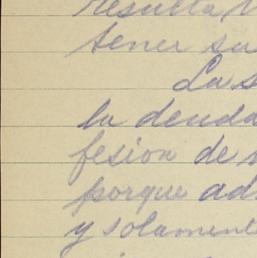 resuelta
tener su
La s
la deuda
fesion de
porque ad
y solament